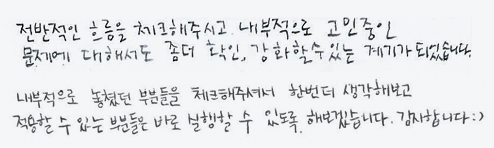 전반적인 흐름을 체크해주시고, 내부적으로 고민중인
문제에 대해서도 좀더 확인, 강화할수있는 계기가 되었습니다.
내부적으로 놓쳤던 부분들을 체크해주셔서 한번더 생각해보고
적용할 수 있는 부분들은 바로 실행할 수 있도록 해보겠습니다. 감사합니다:)